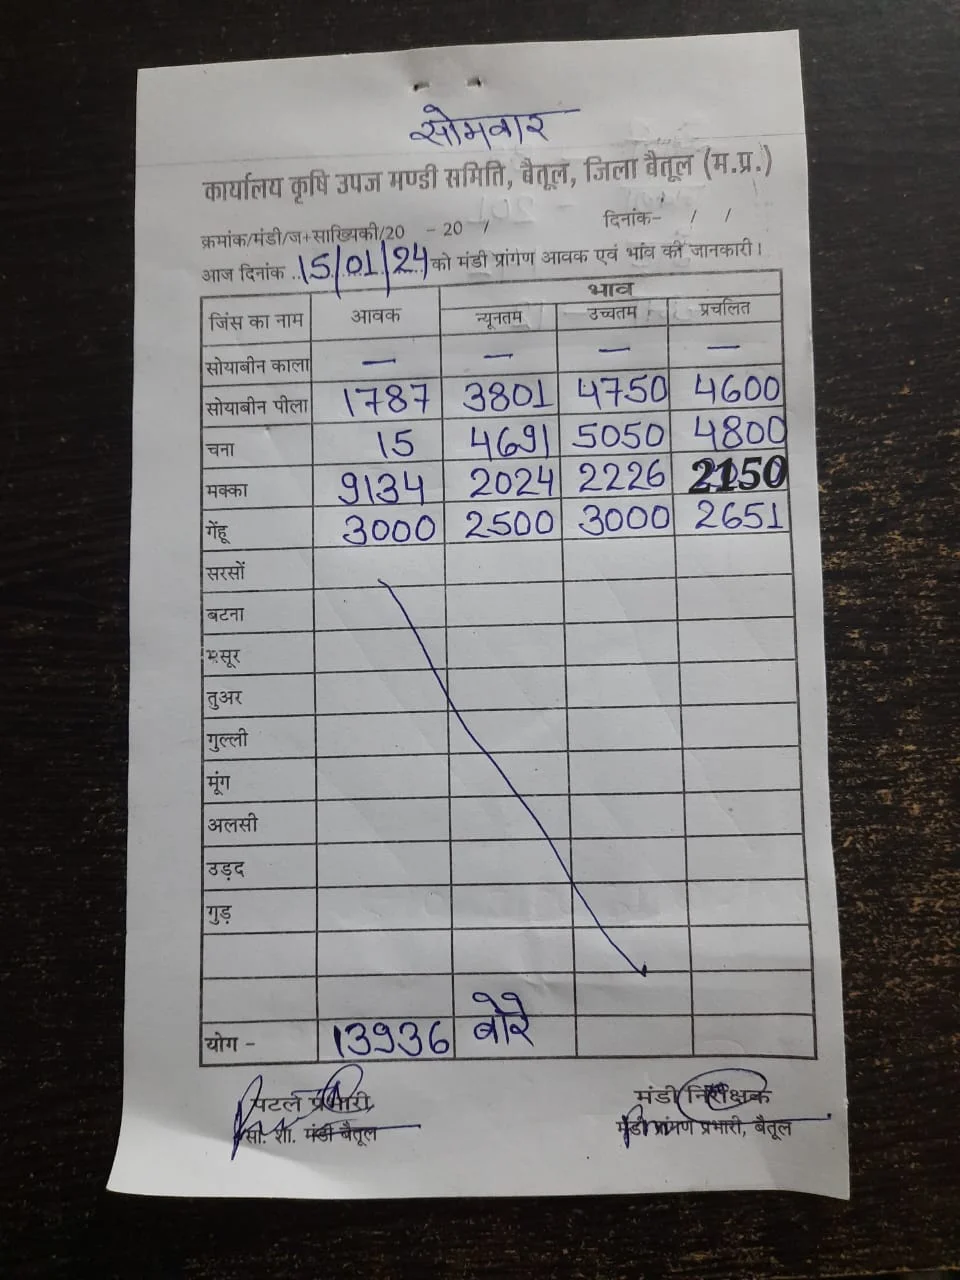 सोमवार
कार्यालय कृषि उपज मण्डी समिति, बैतूल, जिला बैतूल (म.प्र.)
क्रमांक/मंडी/ज+साख्यिकी/20 - 20 / दिनांक- / /
आज दिनांक ..15/01/24 को मंडी प्रांगेण आवक एवं भांव की जानकारी।
जिंस का नाम आवक भाव
न्यूनतम उच्चतम प्रचलित
सोयाबीन काला — — — —
सोयाबीन पीला 1787 3801 4750 4600
चना 15 4691 5050 4800
मक्का 9134 2024 2226 2150
गेंहू 3000 2500 3000 2651
सरसों
बटना
मसूर
तुअर
गुल्ली
मूंग
अलसी
उड़द
गुड़
योग - 13936 बोरे
पटल प्रभारी, मंडी निरीक्षक
सां. शा. मंडी बैतूल मंडी प्रांगण प्रभारी, बैतूल